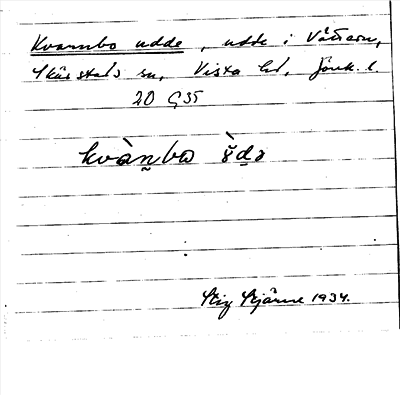 Kvarnbo udde, udde i Vättern,
Skärstads sn, Vista hd, Jönk. l.
20 Ç 35
kvàn̰bo
Stig Stjärne 1934.